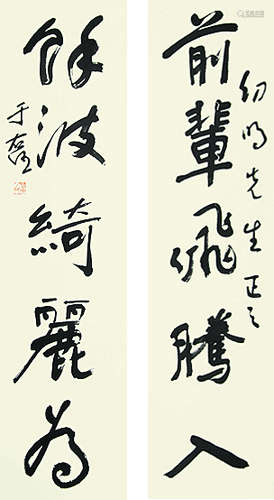 前輩飛騰入
幼鳴先生正之
餘波綺麗為
于右任